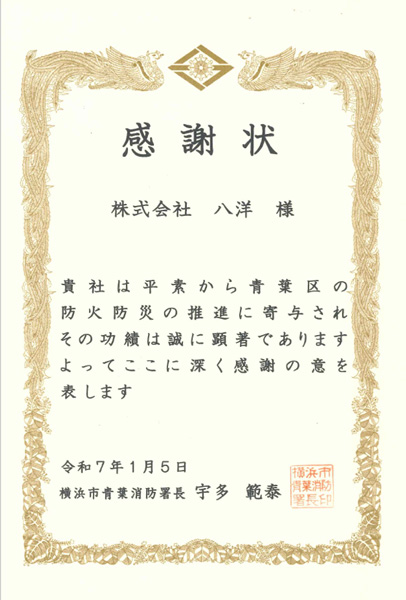 感謝状
株式会社 八洋 様
貴社は平素から青葉区の
防火防災の推進に寄与され
その功績は誠に顕著であります
よってここに深く感謝の意を
表します
令和7年1月5日
横浜市青葉消防署長 宇多 範泰
横浜市
青葉消防
署長印